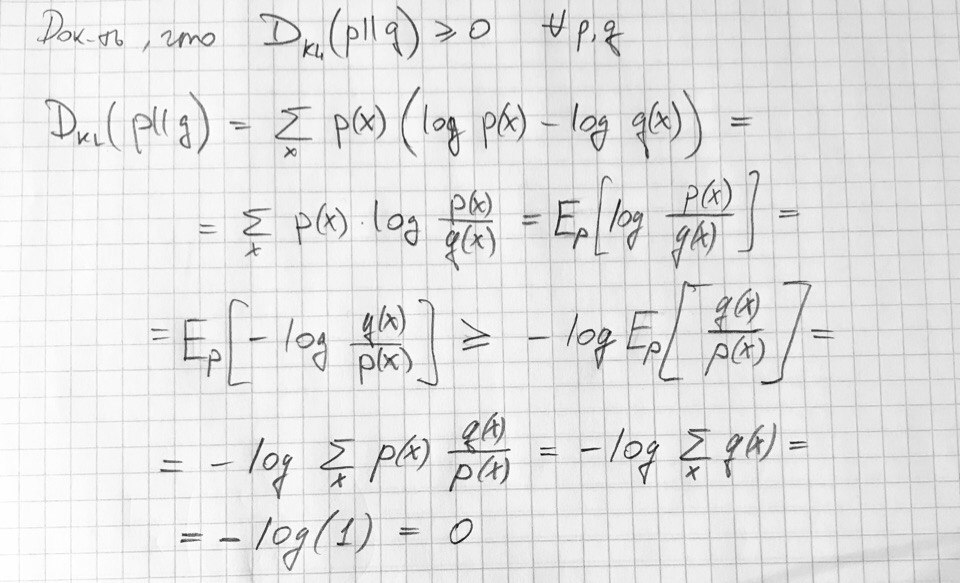 Док-ть, что D_KL(p||q) ⩾ 0 ∀ p,q
D_KL(p||q) = ∑_x p(x) (log p(x) − log q(x)) =
= ∑_x p(x) · log p(x)/q(x) = E_p[log p(x)/q(x)] =
= E_p[− log q(x)/p(x)] ⩾ − log E_p[q(x)/p(x)] =
= − log ∑_x p(x) q(x)/p(x) = − log ∑_x q(x) =
= − log(1) = 0